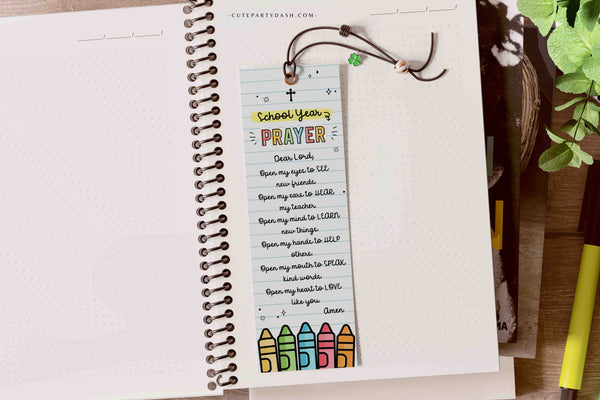 -CUTEPARTYDASH.COM-
School Year
PRAYER
Dear Lord,
Open my eyes to SEE
new friends.
Open my ears to HEAR
my teacher.
Open my mind to LEARN
new things.
Open my hands to HELP
others.
Open my mouth to SPEAK
kind words.
Open my heart to LOVE
like you.
Amen